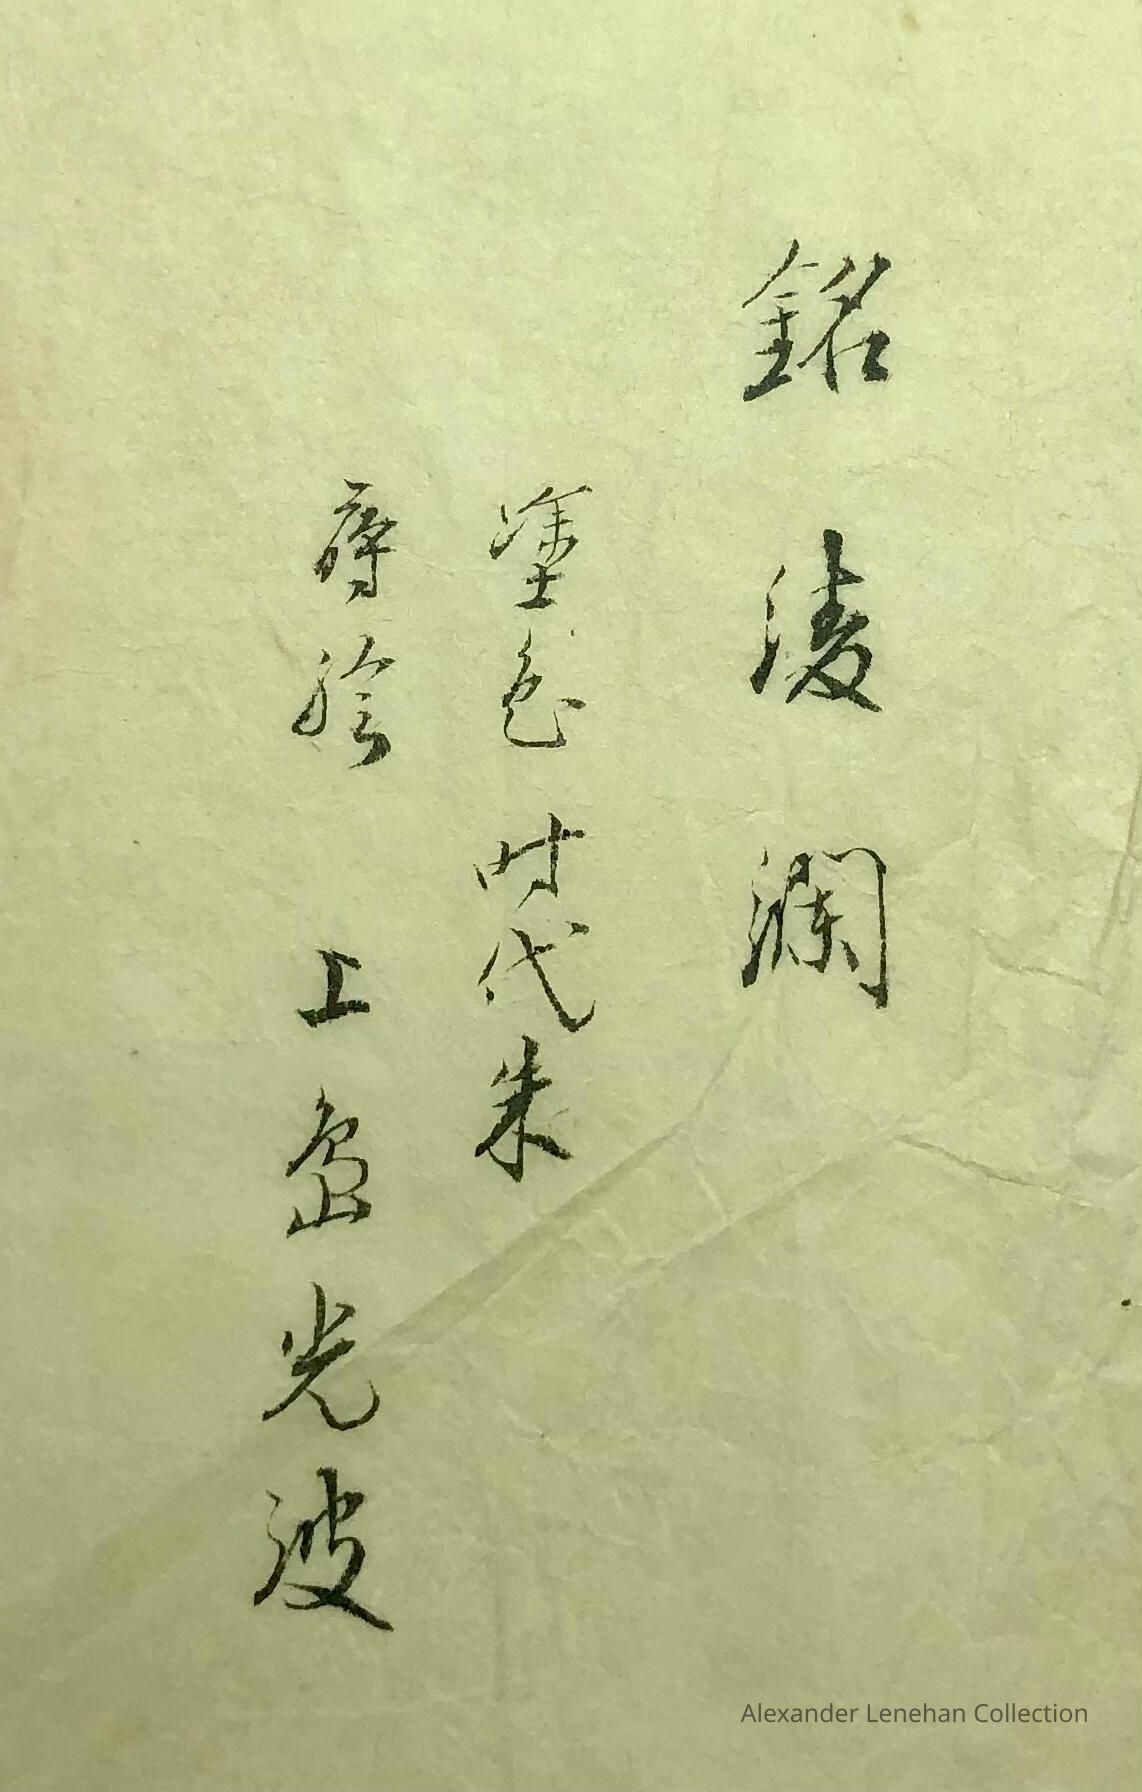 銘 淩瀾
塗色 时代朱
蒔絵 上島光波
Alexander Lenehan Collection